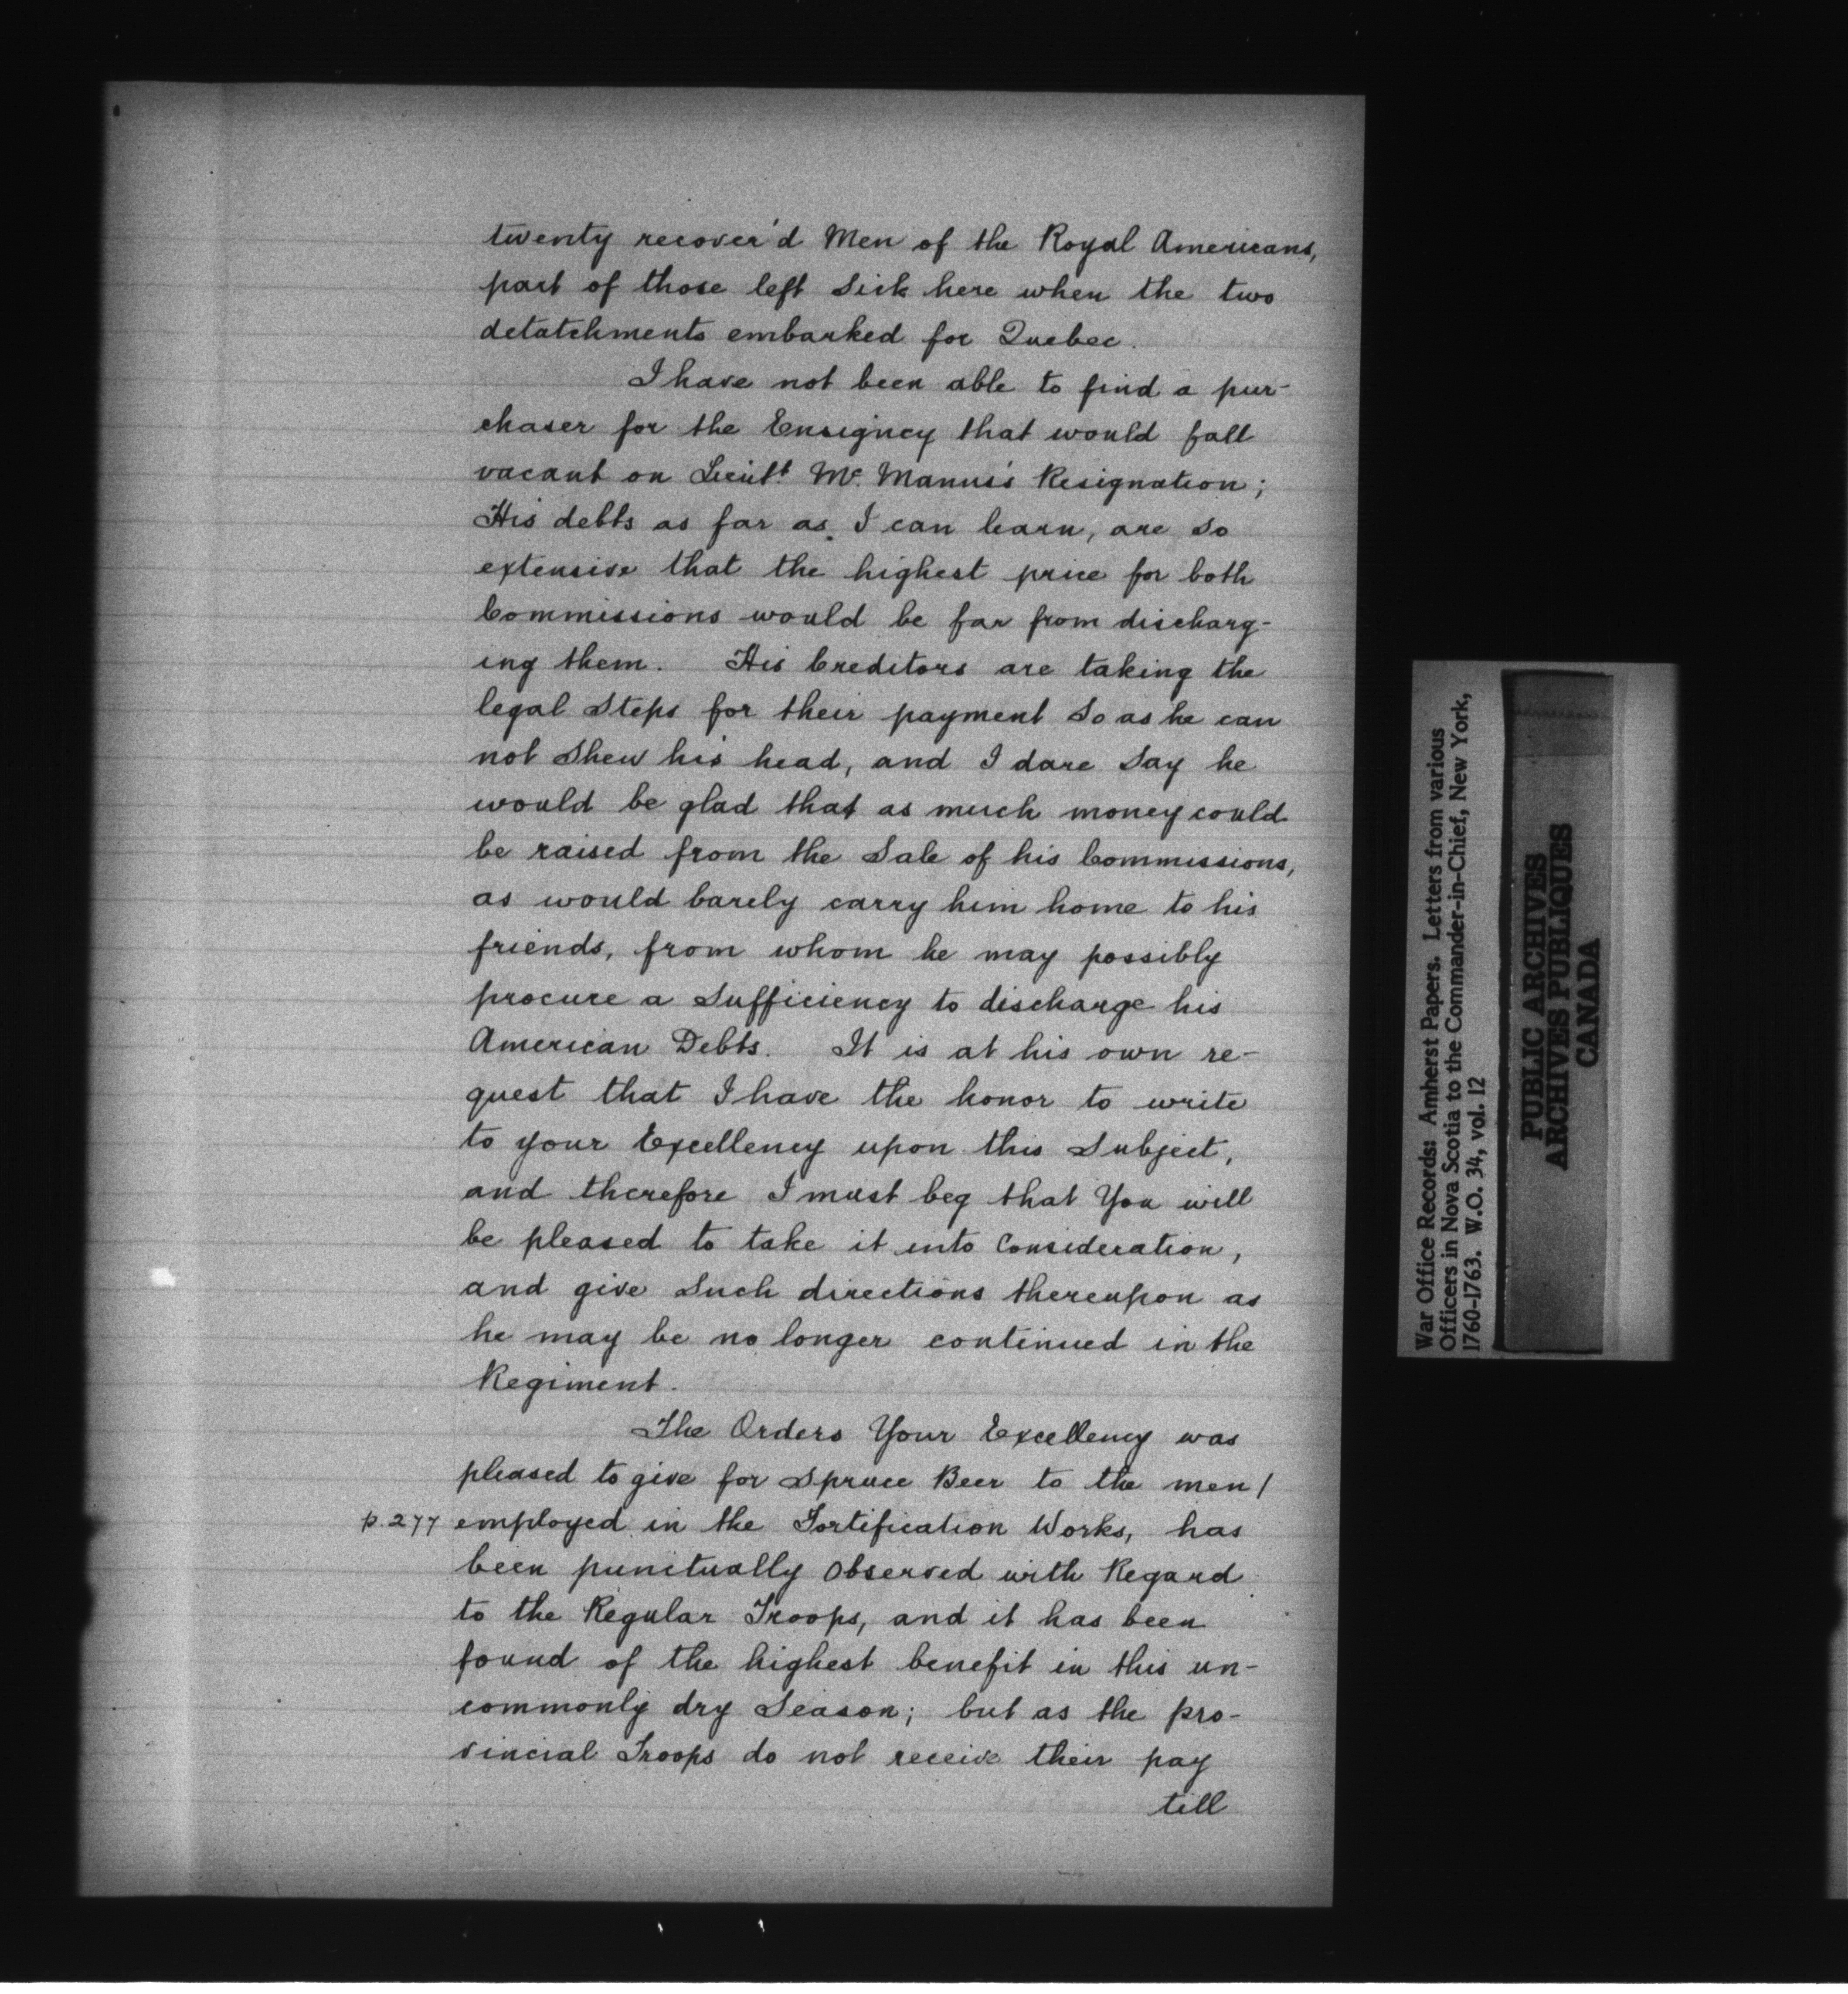 twenty recover'd Men of the Royal Americans,
part of those left Sick here when the two
detatchments embarked for Quebec.
I have not been able to find a pur-
chaser for the Ensigncy that would fall
vacant on Lieut.t Mc. Manus's Resignation;
His debts as far as I can learn, are so
extensive that the highest price for both
Commissions would be far from discharg-
ing them. His Creditors are taking the
legal Steps for their payment So as he can
not Shew his head, and I dare Say he
would be glad that as much money could
be raised from the Sale of his Commissions,
as would barely carry him home to his
friends, from whom he may possibly
procure a Sufficiency to discharge his
American Debts. It is at his own re-
quest that I have the honor to write
to your Excellency upon this Subject,
and therefore I must beg that You will
be pleased to take it into Consideration,
and give Such directions thereupon as
he may be no longer continued in the
Regiment.
The Orders Your Excellency was
pleased to give for Spruce Beer to the men/
p. 277 employed in the Fortification Works, has
been punctually observed with Regard
to the Regular Troops, and it has been
found of the highest benefit in this un-
commonly dry Season; but as the pro-
vincial Troops do not receive their pay
till
War Office Records: Amherst Papers. Letters from various
Officers in Nova Scotia to the Commander-in-Chief, New York,
1760-1763. W.O. 34, vol. 12
PUBLIC ARCHIVES
ARCHIVES PUBLIQUES
CANADA